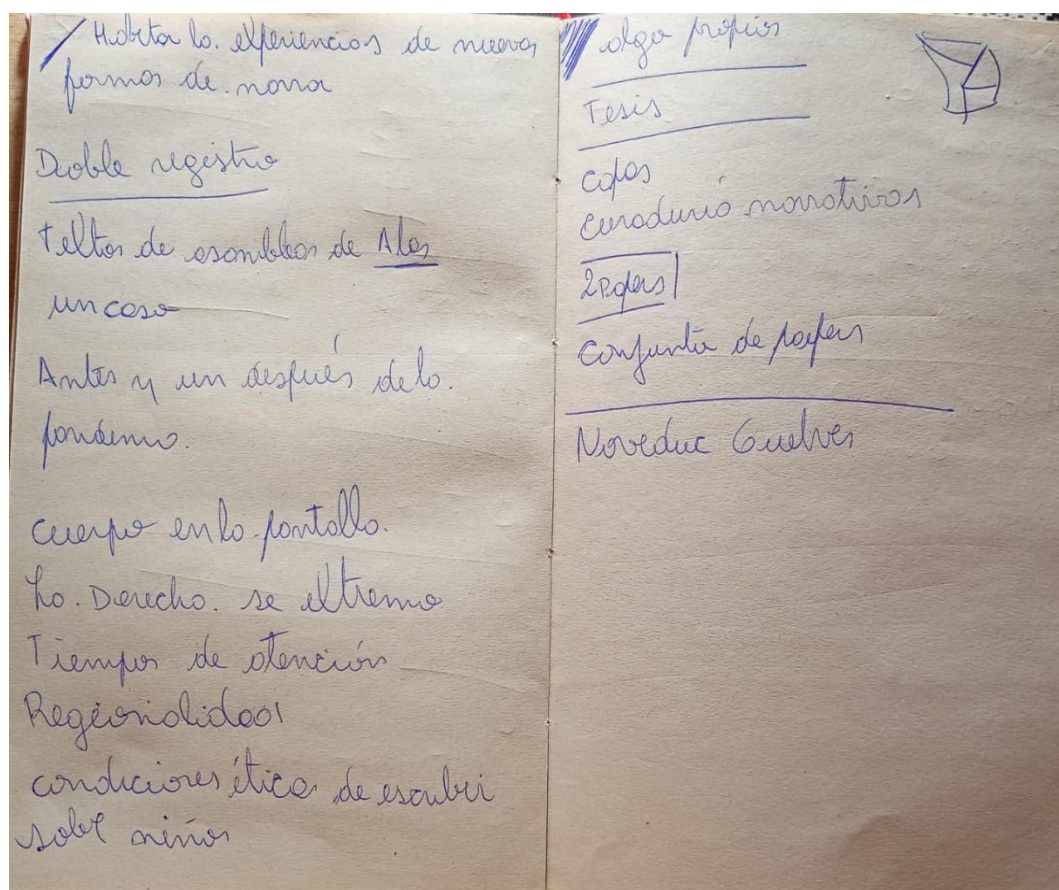 Habitar la experiencias de nuevas
formas de narra
Doble registro
Textos de asambleas de Alas
un caso
Antes y un después de la.
pandemia.
Cuerpo en la pantalla.
La. Derecha. se extrema
Tiempos de atención
Regionalidad
condiciones ética de escribir
sobre niños
algo propios
Tesis
capas
curaduría narrativas
2 Papers
Conjunta de papers
Noveduc